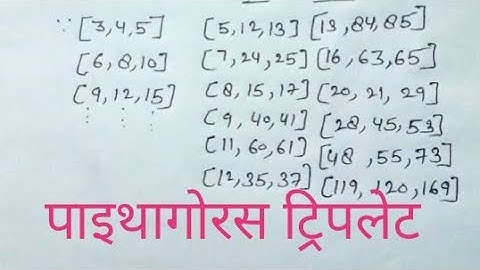 ∵ [3,4,5] [5,12,13] [13,84,85]
[6,8,10] [7,24,25] [16,63,65]
[9,12,15] [8,15,17] [20,21,29]
⋮ ⋮ ⋮ [9,40,41] [28,45,53]
[11,60,61] [48,55,73]
[12,35,37] [119,120,169]
पाइथागोरस ट्रिपलेट